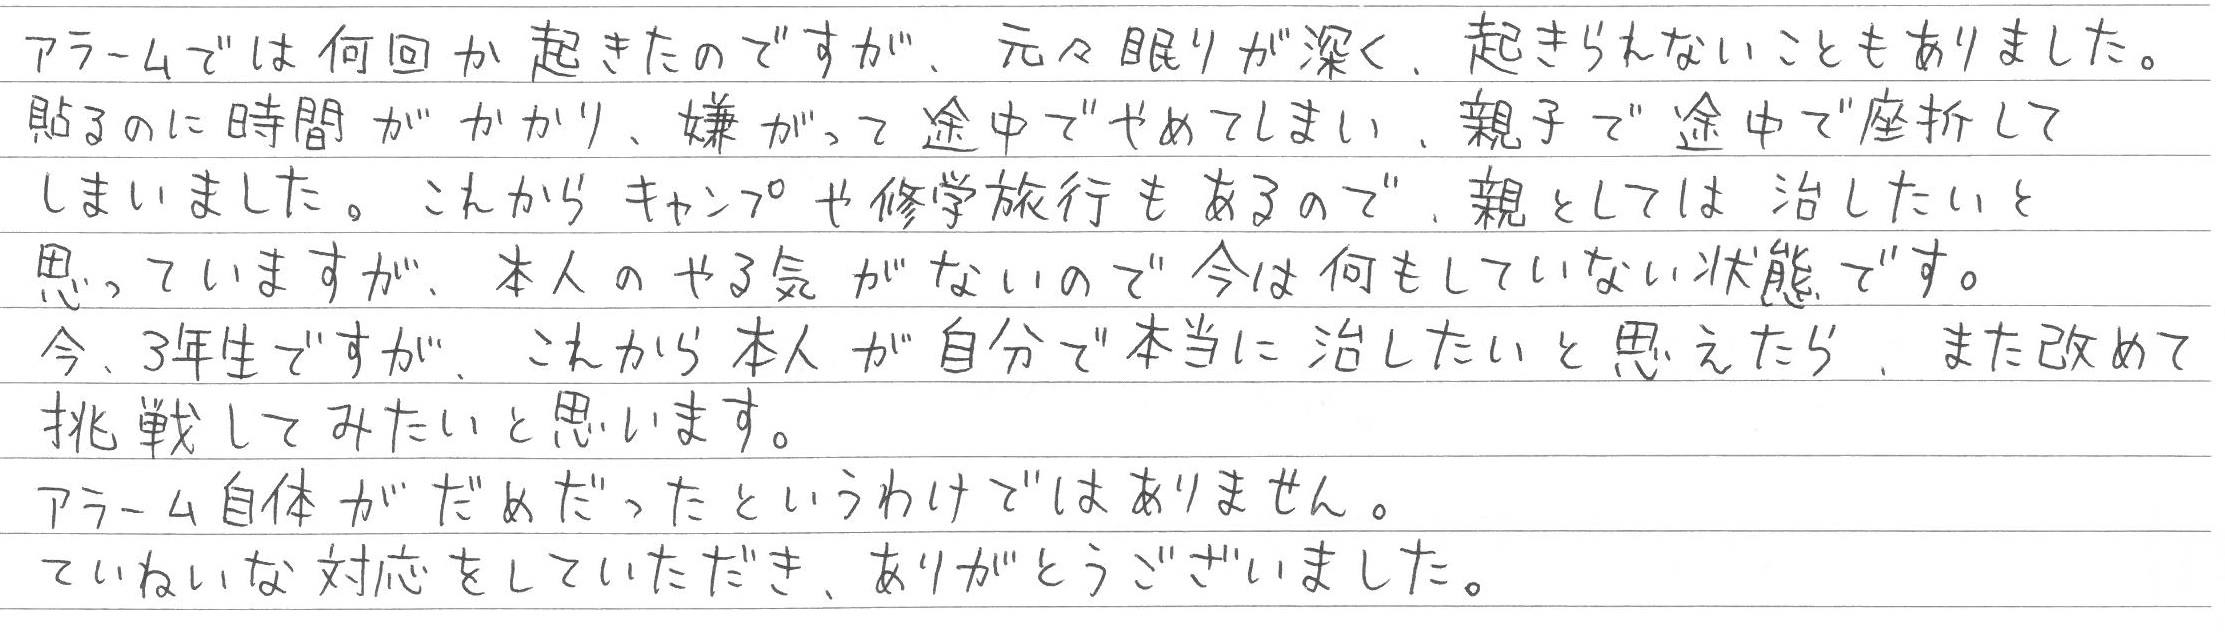 アラームでは何回か起きたのですが、元々眠りが深く、起きられないこともありました。
貼るのに時間がかかり、嫌がって途中でやめてしまい、親子で途中で座折して
しまいました。これからキャンプや修学旅行もあるので、親としては治したいと
思っていますが、本人のやる気がないので今は何もしていない状態です。
今、3年生ですが、これから本人が自分で本当に治したいと思えたら、また改めて
挑戦してみたいと思います。
アラーム自体がだめだったというわけではありません。
ていねいな対応をしていただき、ありがとうございました。